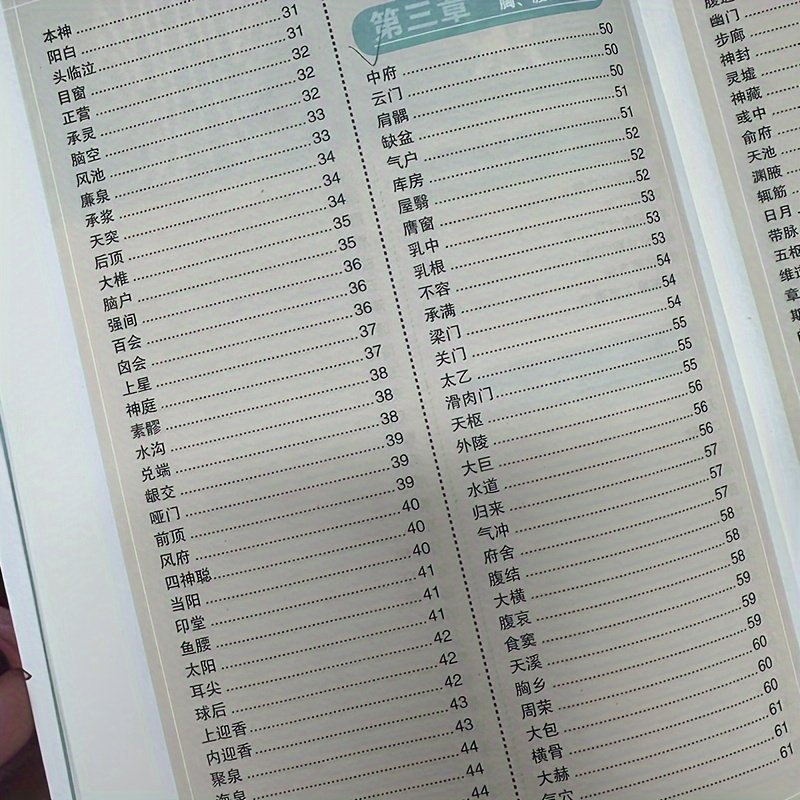 本神 31
阳白 31
头临泣 32
目窗 32
正营 32
承灵 33
脑空 33
风池 34
廉泉 34
承浆 34
天突 35
后顶 35
大椎 36
脑户 36
强间 36
百会 37
囟会 37
上星 38
神庭 38
素髎 38
水沟 39
兑端 39
龈交 39
哑门 40
前顶 40
风府 40
四神聪 41
当阳 41
印堂 41
鱼腰 42
太阳 42
耳尖 42
球后 43
上迎香 43
内迎香 44
聚泉 44
海泉 44
第三章
中府 50
云门 50
肩髃 50
缺盆 51
气户 51
库房 52
屋翳 52
膺窗 52
乳中 53
乳根 53
不容 53
承满 54
梁门 54
关门 54
太乙 55
滑肉门 55
天枢 55
外陵 56
大巨 56
水道 56
归来 57
气冲 57
府舍 57
腹结 58
大横 58
腹哀 58
食窦 59
天溪 59
胸乡 59
周荣 60
大包 60
横骨 60
大赫 61
气穴 61
幽门
步廊
神封
灵墟
神藏
彧中
俞府
天池
渊腋
辄筋
日月
带脉
五枢
维
章